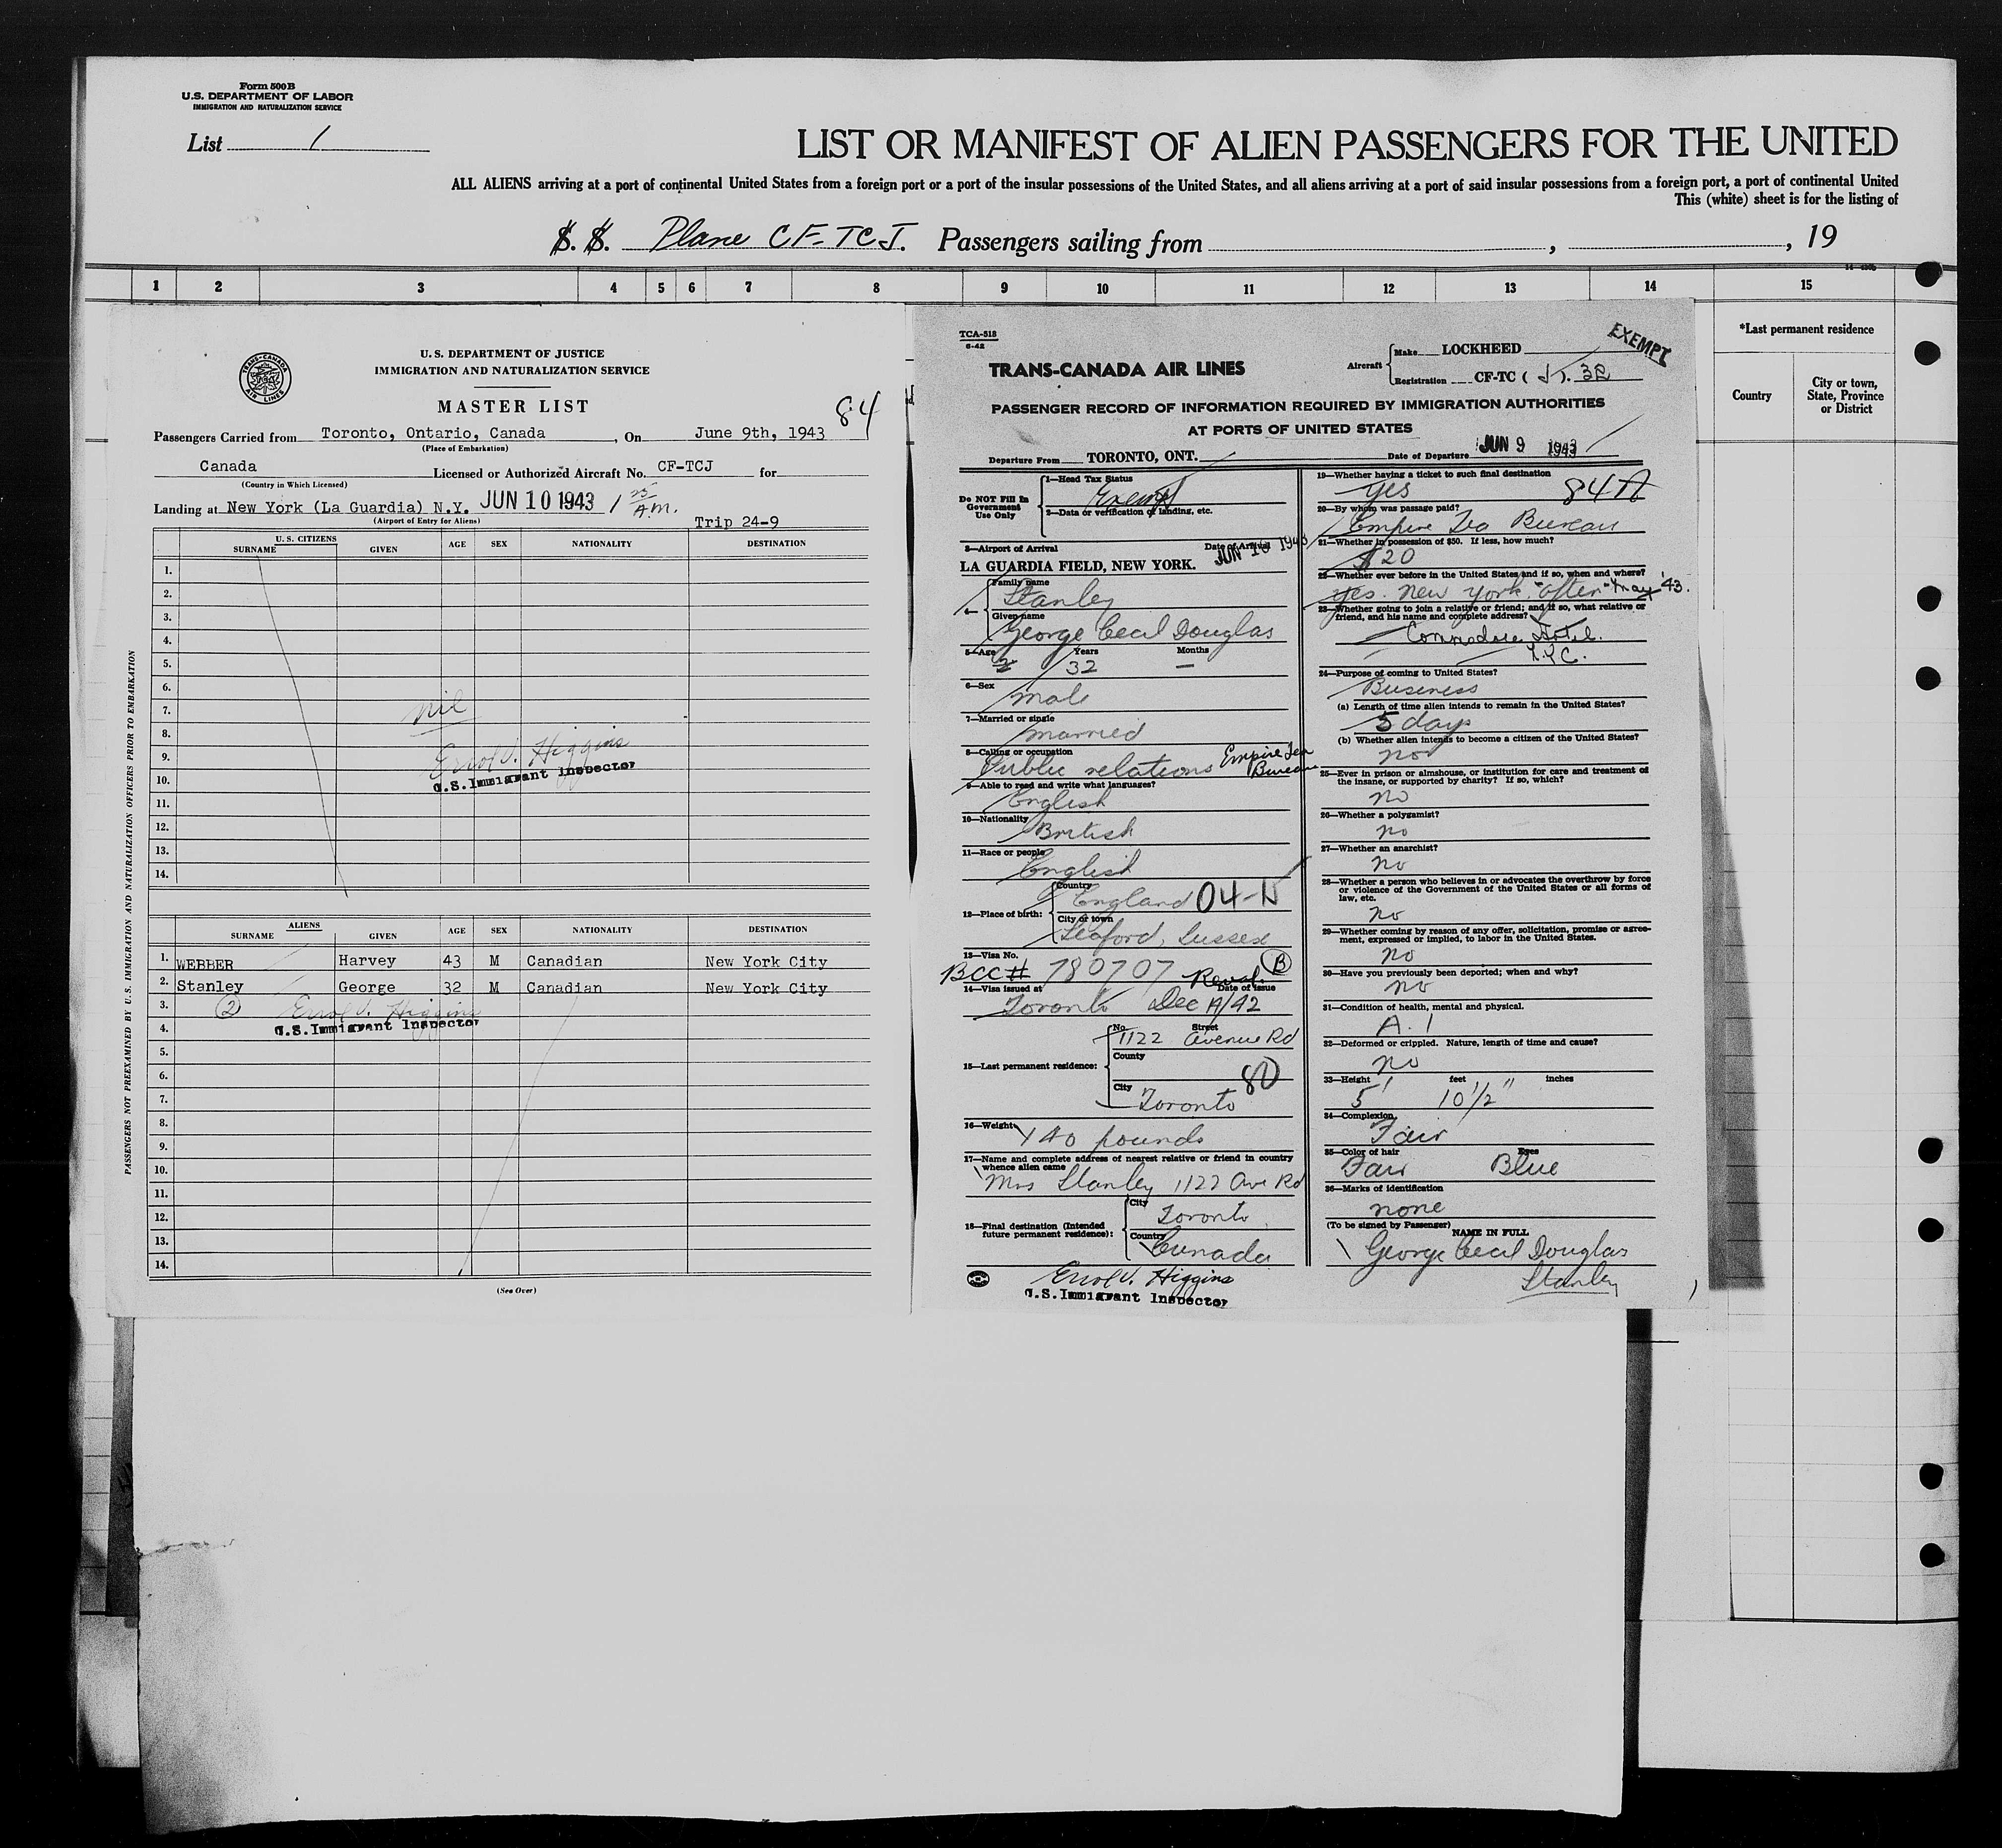 Form 500B
U.S. DEPARTMENT OF LABOR
IMMIGRATION AND NATURALIZATION SERVICE
List 1
LIST OR MANIFEST OF ALIEN PASSENGERS FOR THE UNITED
ALL ALIENS arriving at a port of continental United States from a foreign port or a port of the insular possessions of the United States, and all aliens arriving at a port of said insular possessions from a foreign port, a port of continental United
This (white) sheet is for the listing of
S. S. Plane CF-TCJ. Passengers sailing from , , 19
1 2 3 4 5 6 7 8 9 10 11 12 13 14 15
*Last permanent residence
Country
City or town, State, Province or District
TRANS-CANADA AIR LINES
U. S. DEPARTMENT OF JUSTICE
IMMIGRATION AND NATURALIZATION SERVICE
MASTER LIST
84
Passengers Carried from Toronto, Ontario, Canada, On June 9th, 1943
(Place of Embarkation)
Canada Licensed or Authorized Aircraft No. CF-TCJ for
(Country in Which Licensed)
Landing at New York (La Guardia) N.Y. JUN 10 1943 1 25 A.M.
(Airport of Entry for Aliens)
Trip 24-9
U. S. CITIZENS
SURNAME GIVEN AGE SEX NATIONALITY DESTINATION
1.
2.
3.
4.
5.
6.
7. nil
8.
9. Errol V. Higgins
10. U.S. Immigrant Inspector
11.
12.
13.
14.
ALIENS
SURNAME GIVEN AGE SEX NATIONALITY DESTINATION
1. WEBBER Harvey 43 M Canadian New York City
2. Stanley George 32 M Canadian New York City
3. (2) Errol V. Higgins
4. U.S. Immigrant Inspector
5.
6.
7.
8.
9.
10.
11.
12.
13.
14.
(See Over)
PASSENGERS NOT PREEXAMINED BY U.S. IMMIGRATION AND NATURALIZATION OFFICERS PRIOR TO EMBARKATION
TCA-518
6-42
TRANS-CANADA AIR LINES
Aircraft Make LOCKHEED
Registration CF-TC ( J ). 32
EXEMPT
PASSENGER RECORD OF INFORMATION REQUIRED BY IMMIGRATION AUTHORITIES
AT PORTS OF UNITED STATES
Departure From TORONTO, ONT. Date of Departure JUN 9 1943
Do NOT Fill in Government Use Only
1—Head Tax Status
Exempt
2—Data or verification of landing, etc.
3—Airport of Arrival Date of Arrival
LA GUARDIA FIELD, NEW YORK. JUN 10 1943
4— Family name
Stanley
Given name
George Cecil Douglas
5—Age Years Months
32 —
6—Sex
Male
7—Married or single
Married
8—Calling or occupation
Public relations Empire Tea Bureau
9—Able to read and write what languages?
English
10—Nationality
British
11—Race or people
English
12—Place of birth: Country
England 04-N
City or town
Seaford, Sussex
13—Visa No.
BCC# 780707 Reval. (B)
14—Visa issued at Date of issue
Toronto Dec A/42
15—Last permanent residence: No. Street
1122 Avenue Rd
County
80
City
Toronto
16—Weight
140 pounds
17—Name and complete address of nearest relative or friend in country whence alien came
Mrs Stanley 1122 Ave Rd
18—Final destination (Intended future permanent residence): City
Toronto
Country
Canada
Errol V. Higgins
U.S. Immigrant Inspector
19—Whether having a ticket to such final destination
Yes 84A
20—By whom was passage paid?
Empire Tea Bureau
21—Whether in possession of $50. If less, how much?
$20
22—Whether ever before in the United States and if so, when and where?
Yes. New York. "often" May '43.
23—Whether going to join a relative or friend; and if so, what relative or friend, and his name and complete address?
Commodore Hotel.
N.Y.C.
24—Purpose of coming to United States?
Business
(a) Length of time alien intends to remain in the United States?
5 days
(b) Whether alien intends to become a citizen of the United States?
no
25—Ever in prison or almshouse, or institution for care and treatment of the insane, or supported by charity? If so, which?
no
26—Whether a polygamist?
no
27—Whether an anarchist?
no
28—Whether a person who believes in or advocates the overthrow by force or violence of the Government of the United States or all forms of law, etc.
no
29—Whether coming by reason of any offer, solicitation, promise or agreement, expressed or implied, to labor in the United States.
no
30—Have you previously been deported; when and why?
no
31—Condition of health, mental and physical.
A.1
32—Deformed or crippled. Nature, length of time and cause?
no
33—Height feet inches
5' 10 1/2"
34—Complexion
Fair
35—Color of hair Eyes
Fair Blue
36—Marks of identification
none
(To be signed by Passenger) NAME IN FULL
George Cecil Douglas
Stanley